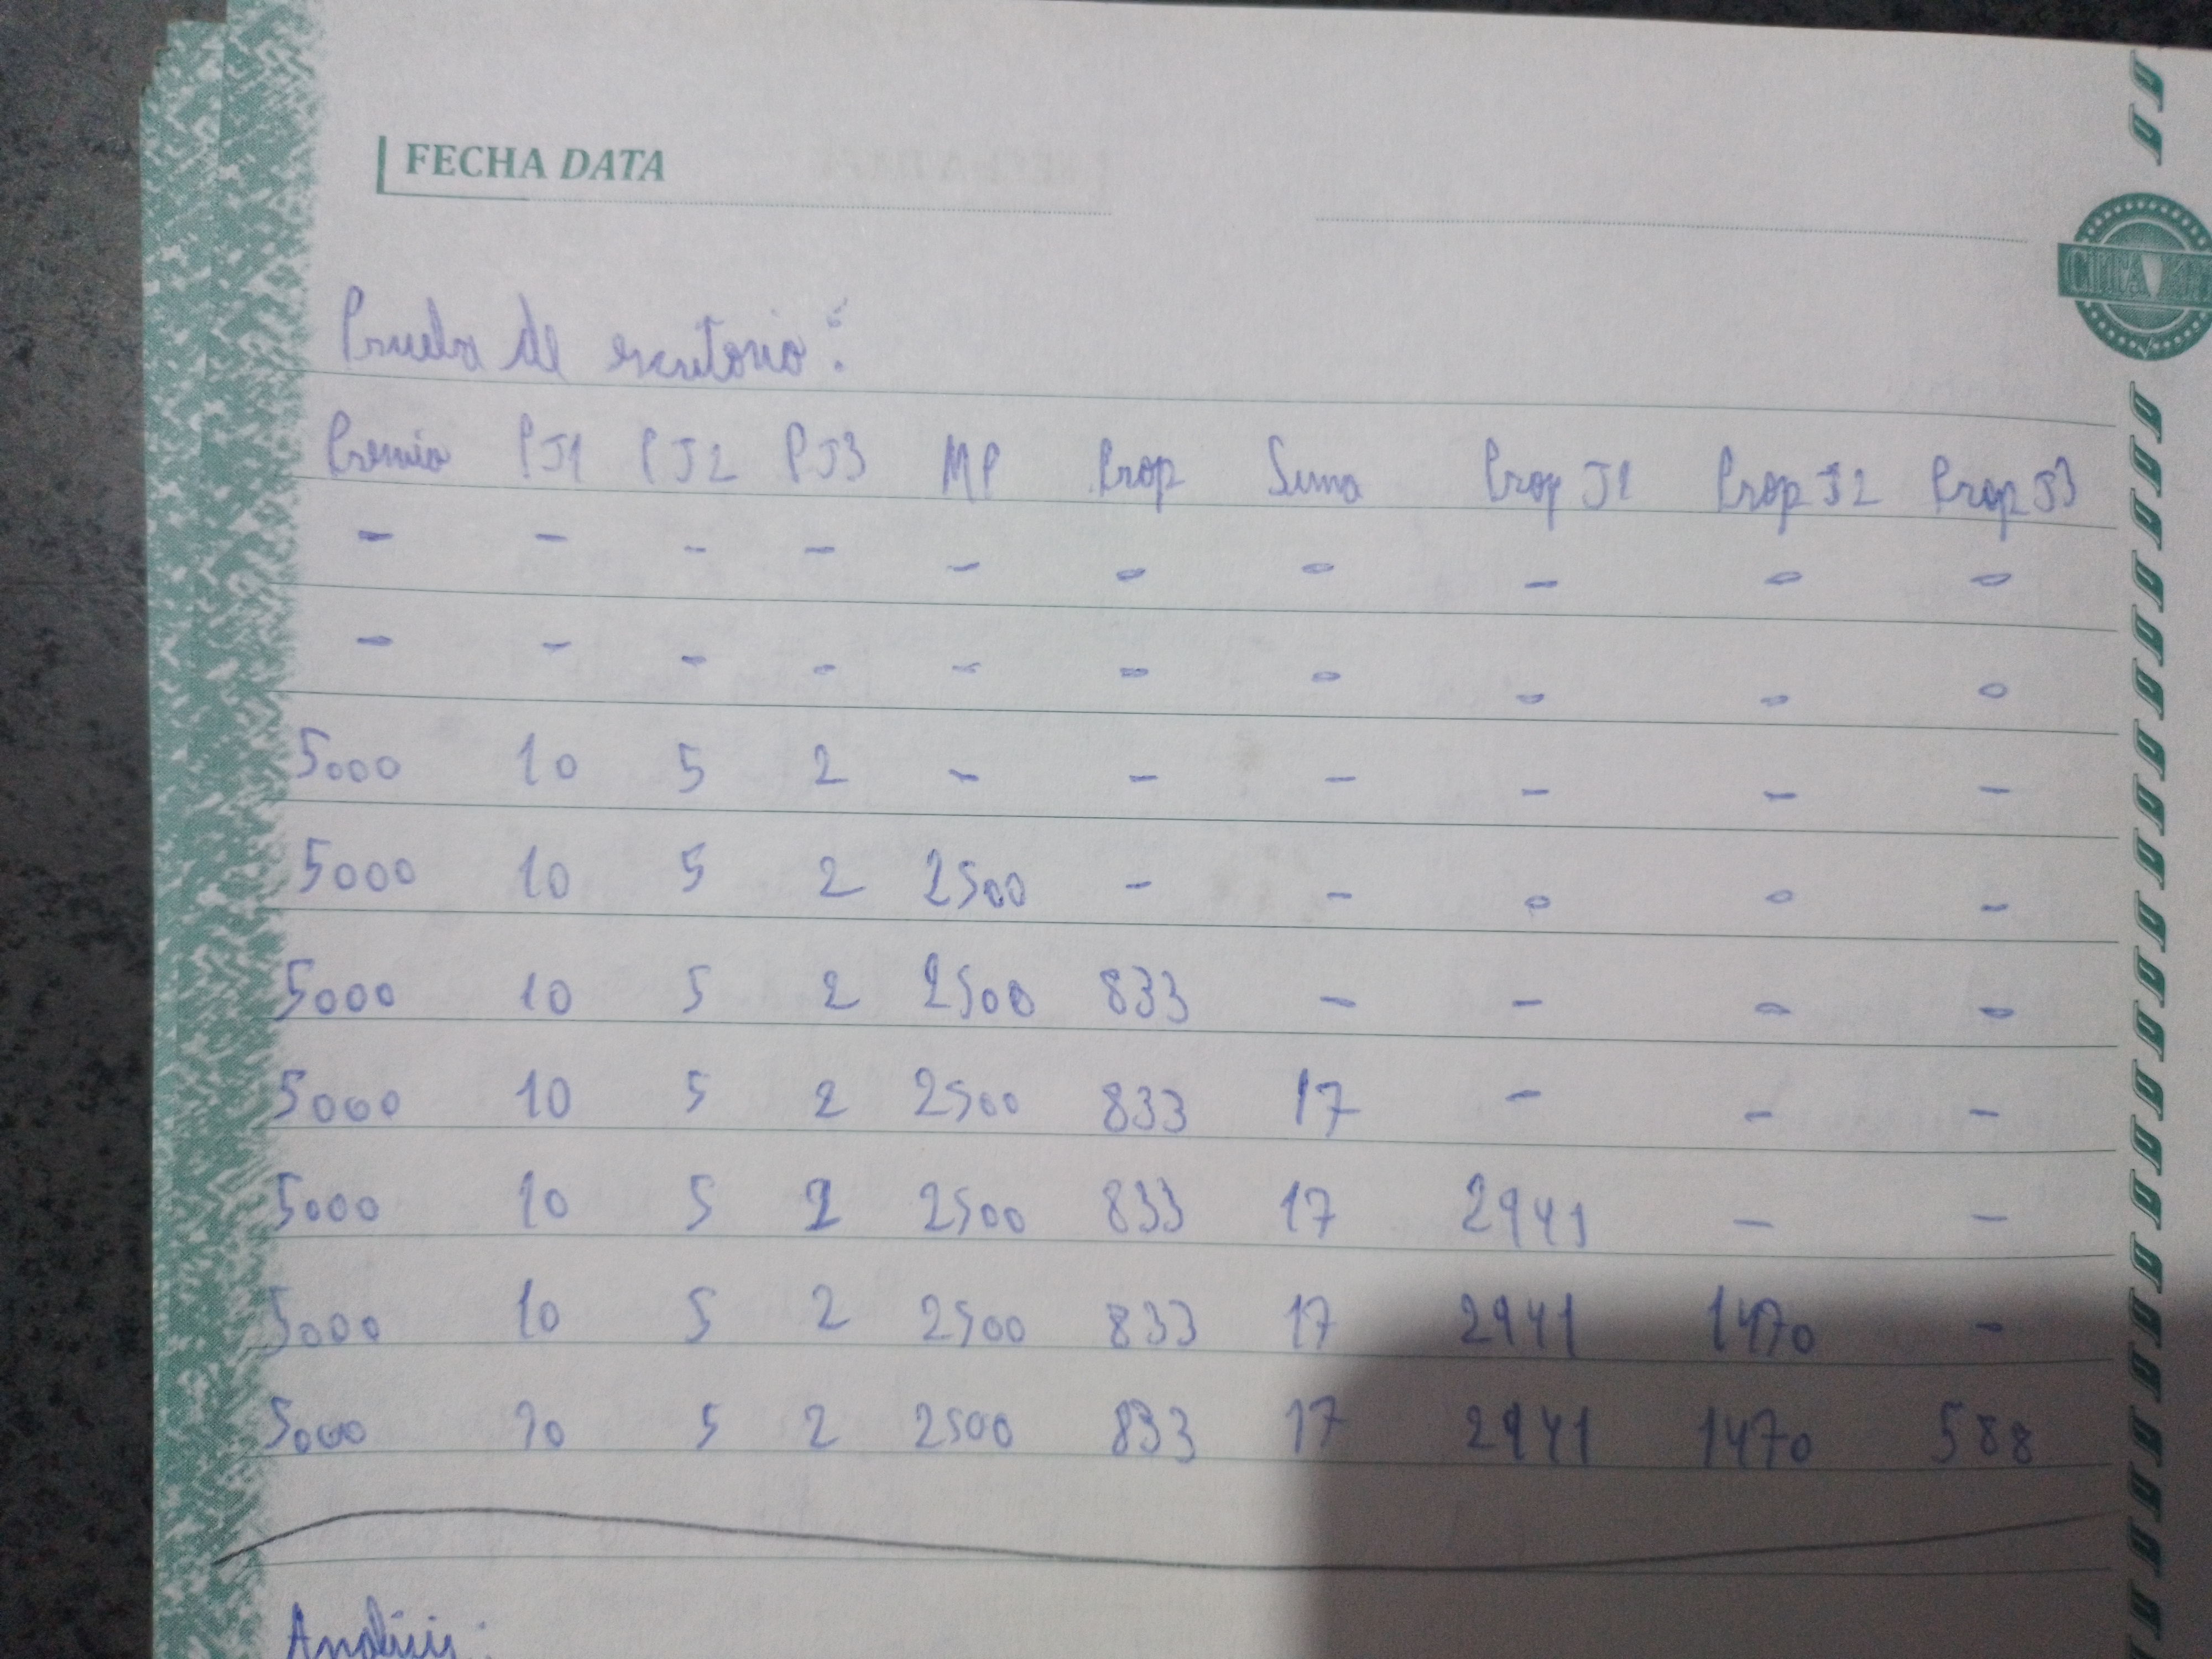 FECHA DATA
Prueba de escritorio:
Premio PJ1 PJ2 PJ3 MP Prop Suma Prop J1 Prop J2 Prop J3
- - - - - - - - - -
- - - - - - - - - -
5000 10 5 2 - - - - - -
5000 10 5 2 2500 - - - - -
5000 10 5 2 2500 833 - - - -
5000 10 5 2 2500 833 17 - - -
5000 10 5 2 2500 833 17 2941 - -
5000 10 5 2 2500 833 17 2941 1470 -
5000 10 5 2 2500 833 17 2941 1470 588
Análisis: